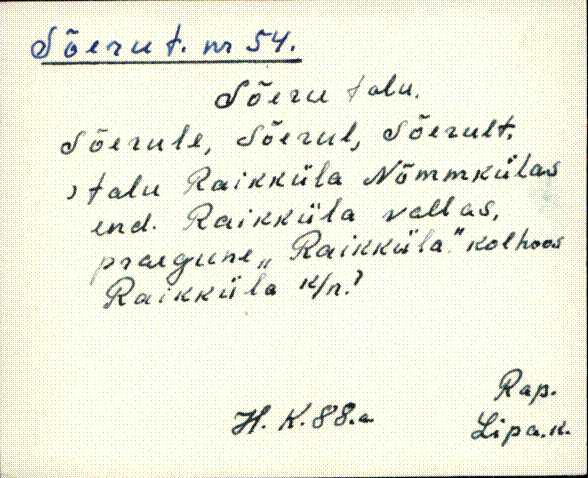 Sõeru t. nr 54.
Sõeru talu.
Sõerule, Sõerul, Sõerult,
, talu Raikküla Nõmmkülas
end. Raikküla vallas,
praegune „Raikküla" kolhoos
Raikküla k/n.?
Rap.
H. K. 88.a
Lipa.k.